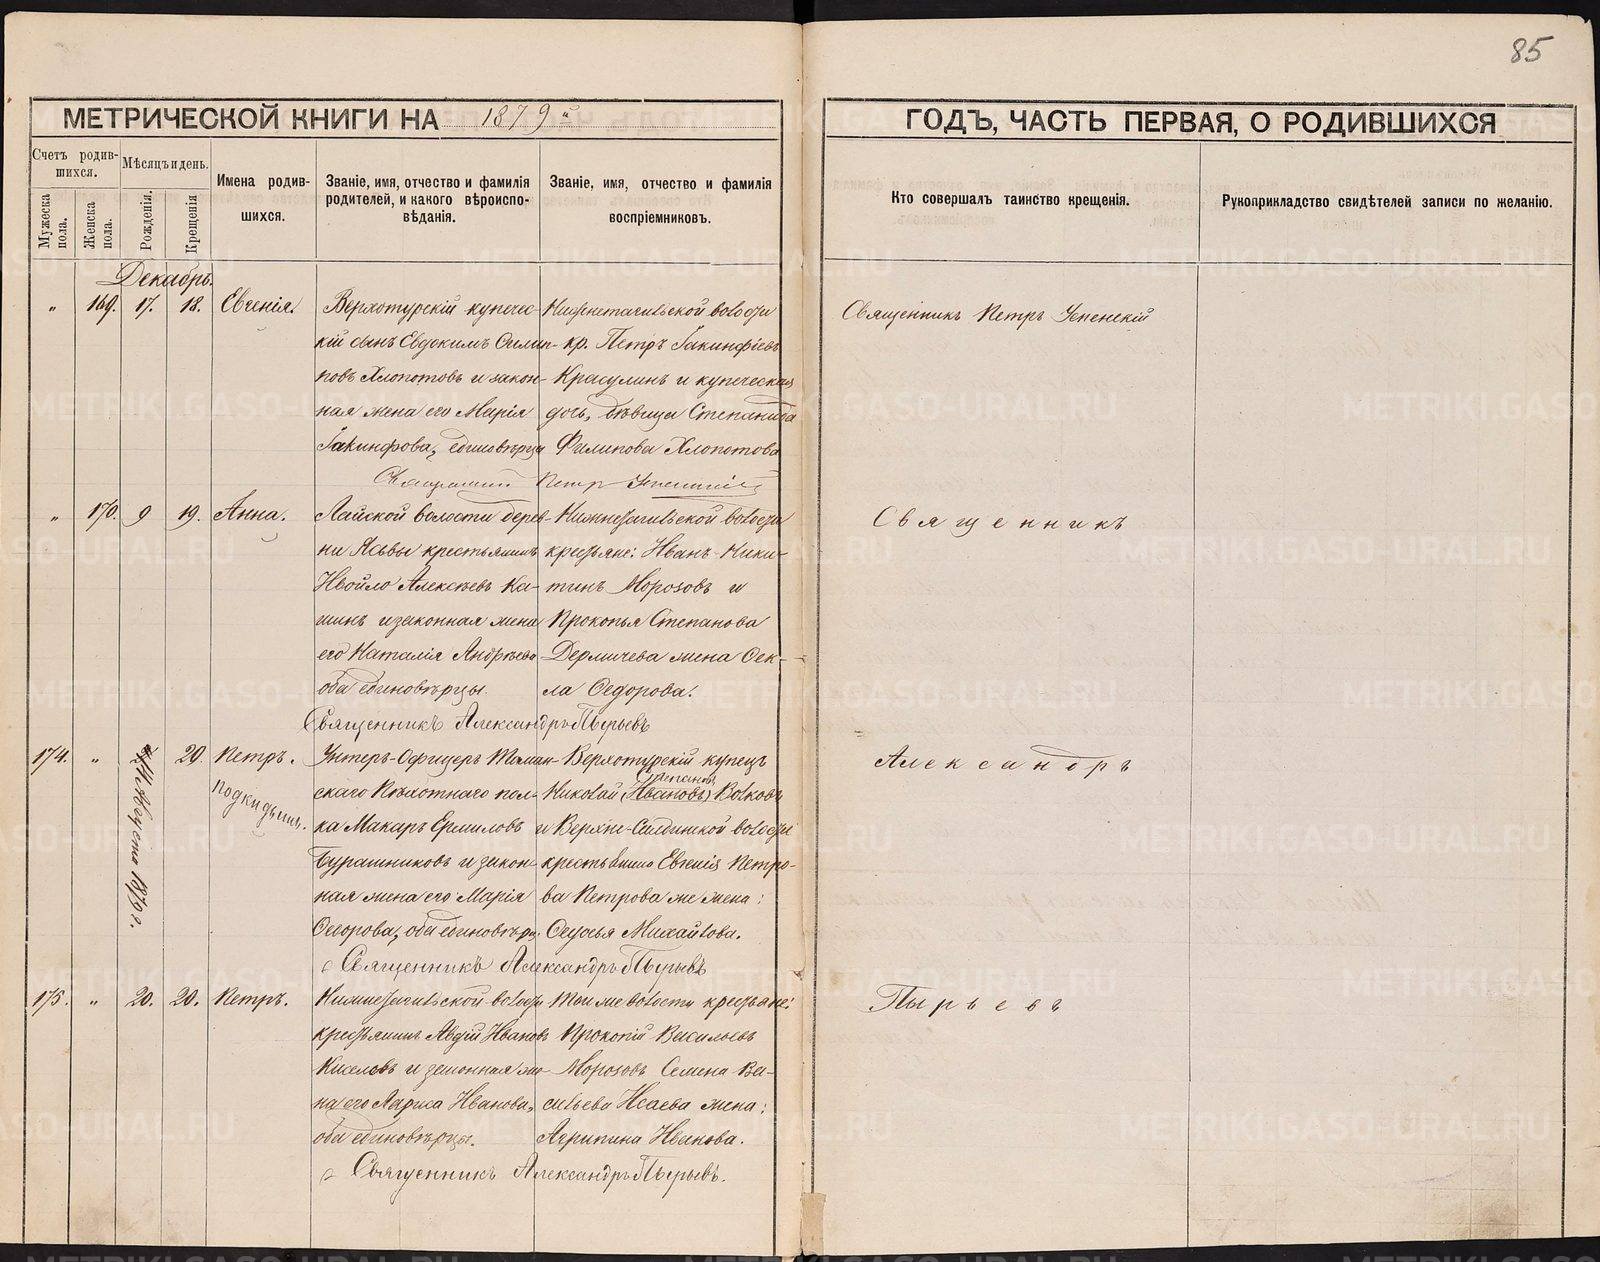 85
МЕТРИЧЕСКОЙ КНИГИ НА 1879й
ГОДЪ, ЧАСТЬ ПЕРВАЯ, О РОДИВШИХСЯ
Счетъ родив-
шихся.
Мѣсяцъ и день.
Мужеска пола.
Женска пола.
Рожденія.
Крещенія
Имена родив-
шихся.
Званіе, имя, отчество и фамилія
родителей, и какого вѣроиспо-
вѣданія.
Званіе, имя, отчество и фамилія
воспріемниковъ.
Кто совершалъ таинство крещенія.
Рукоприкладство свидѣтелей записи по желанію.
Декабрь.
" 169. 17. 18. Евгенія.
Верхотурскій купечес-
кій сынъ Евдокимъ Филип-
повъ Хлопотовъ и закон-
ная жена его Марія
Іакинфова, единовѣрцы
Нижнетагильской волости
кр. Петръ Іакинфіевъ
Красулинъ и купеческая
дочь, дѣвица Степанида
Филипова Хлопотова
Священникъ Петръ Успенскій
Священникъ Петръ Успенскій
" 170. 9 19. Анна.
Лайской волости дерев-
ни Ясьвы крестьянинъ
Алексѣевъ Ка-
шинъ и законная жена
его Наталія Андреева
оба единовѣрцы.
Нижнетагильской волости
крестьяне: Иванъ Ники-
тинъ Морозовъ и
Прокопья Степанова
Дермичева жена Фек-
ла Федорова.
Священникъ Александръ Пырьевъ
Священникъ
174. " 14 Августа 1879 г. 20. Петръ.
подкидышъ.
Унтеръ-Офицеръ
скаго Пѣхотнаго пол-
ка Макаръ Ермиловъ
Бурашниковъ и закон-
ная жена его Марія
Федорова, оба единовѣрц.
Верхотурскій купецъ
Степановъ
Николай (Ивановъ) Волковъ
и Верхне-Салдинской волости
Евгенія Петро-
ва Петрова же жена:
Михайлова.
Священникъ Александръ Пырьевъ
Александръ
175. " 20. 20. Петръ.
Нижнетагильской волости
крестьянинъ Авдій Ивановъ
Киселевъ и законная же-
на его Лариса Иванова,
оба единовѣрцы.
Той же волости крестьяне:
Прокопій Васильевъ
Морозовъ Семена Ва-
сильева Исаева жена:
Агрипина Иванова.
Священникъ Александръ Пырьевъ.
Пырьевъ
METRIKI.GASO-URAL.RU